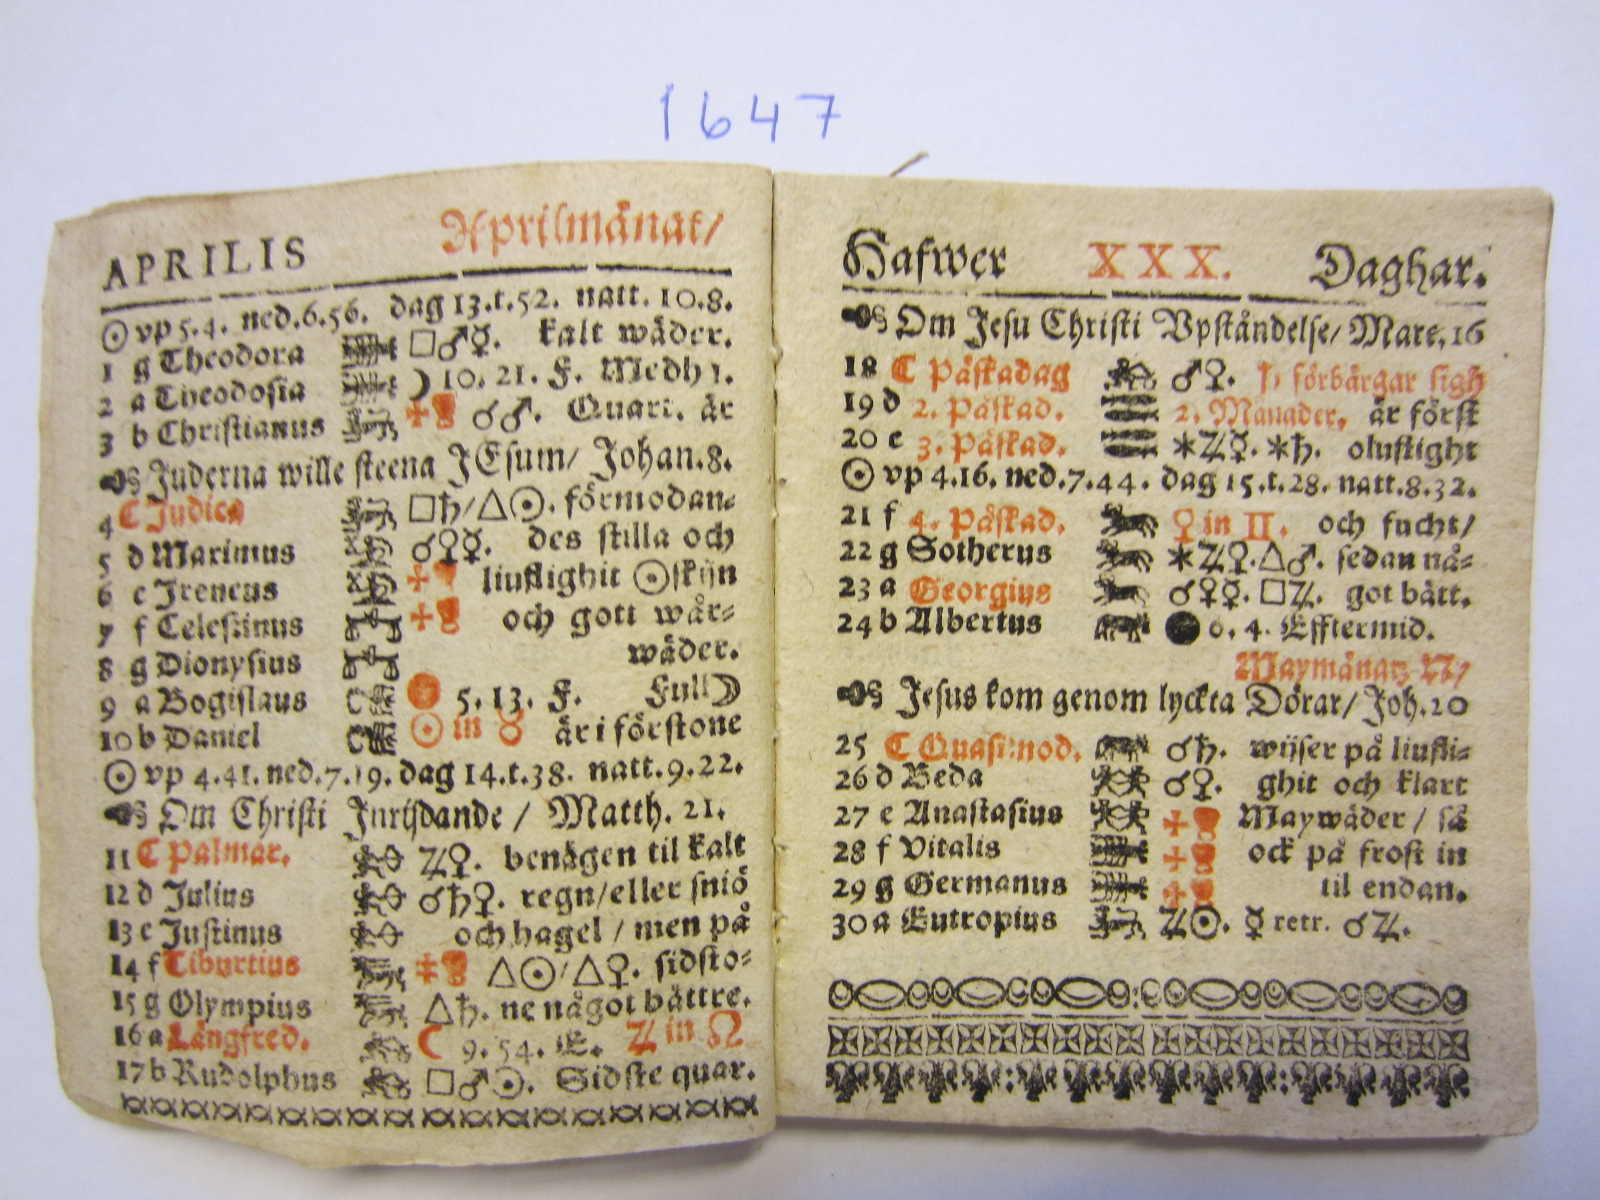 1647
APRILIS Aprilmånat/
☉ vp 5.4. ned.6.56. dag 13.t.52. natt. 10.8.
1 g Theodora □♂☿. kalt wäder.
2 a Theodosia ☽ 10. 21. F. Medh 1.
3 b Christianus ☌♂. Quart. är
Juderna wille steena JEsum/ Johan.8.
4 C Judica □♄/△☉. förmodan⸗
5 d Maximus ☌♀☿. des stilla och
6 e Ireneus liuflighit ☉skijn
7 f Celestinus och gott wår⸗
8 g Dionysius wäder.
9 a Bogislaus 5. 13. F. Full☽
10 b Daniel ☉ in ♉ är i förstone
☉ vp 4.41. ned.7.19. dag 14.t.38. natt.9.22.
Om Christi Inrijdande / Matth. 21.
11 C Palmar. ♃♀. benägen til kalt
12 d Julius ☌♄♀. regn/eller sniö
13 e Justinus och hagel / men på
14 f Tiburtius △☉/△♀. sidsto⸗
15 g Olympius △♄. ne något bättre.
16 a Långfred. ☾ 9. 54. E. ♃ in ♌
17 b Rudolphus □♂☉. Sidste quar.
Hafwer XXX. Daghar.
Om Jesu Christi Vpståndelse/ Marc. 16
18 C Påskadag ♂♀. ♄ förbärgar sigh
19 d 2. Påskad. 2. Månader, är först
20 e 3. Påskad. ⚹♃☿. ⚹♄. olustight
☉ vp 4.16. ned.7.44. dag 15.t.28. natt.8.32.
21 f 4. Påskad. ♀ in II. och fucht/
22 g Sotherus ⚹♃♀.△♂. sedan nå⸗
23 a Georgius ☌♀☿. □♃. got bätt.
24 b Albertus ● 6. 4. Efftermid.
Maymånatz N/
Jesus kom genom lyckta Dörar/ Joh.20
25 C Quasimod. ☌♄. wijser på liufli⸗
26 d Beda ☌♀. ghit och klart
27 e Anastasius Maywäder / så
28 f Vitalis ock på frost in
29 g Germanus til endan.
30 a Eutropius ♃☉. ☿ retr. ☌♃.